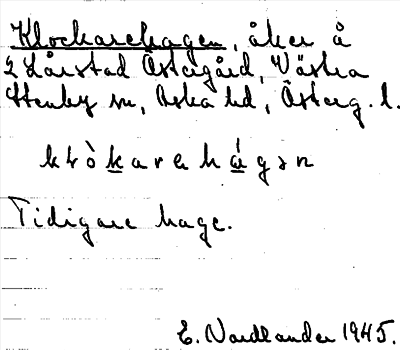 Klockarehagen, åker å
2 Lårstad Östergård, Västra
Stenby sn, Aska hd, Österg. l.
klò̀karehágən
Tidigare hage.
E. Nordlander 1945.